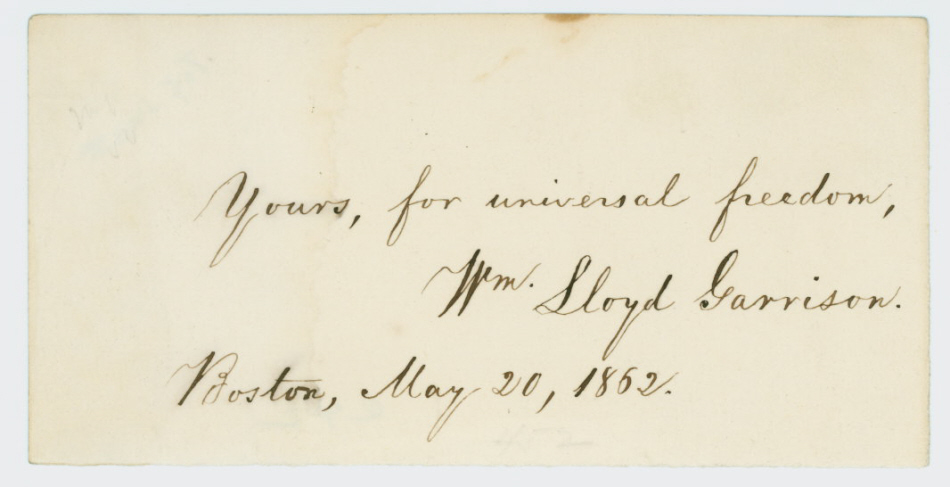 Yours, for universal freedom,
Wm. Lloyd Garrison.
Boston, May 20, 1862.